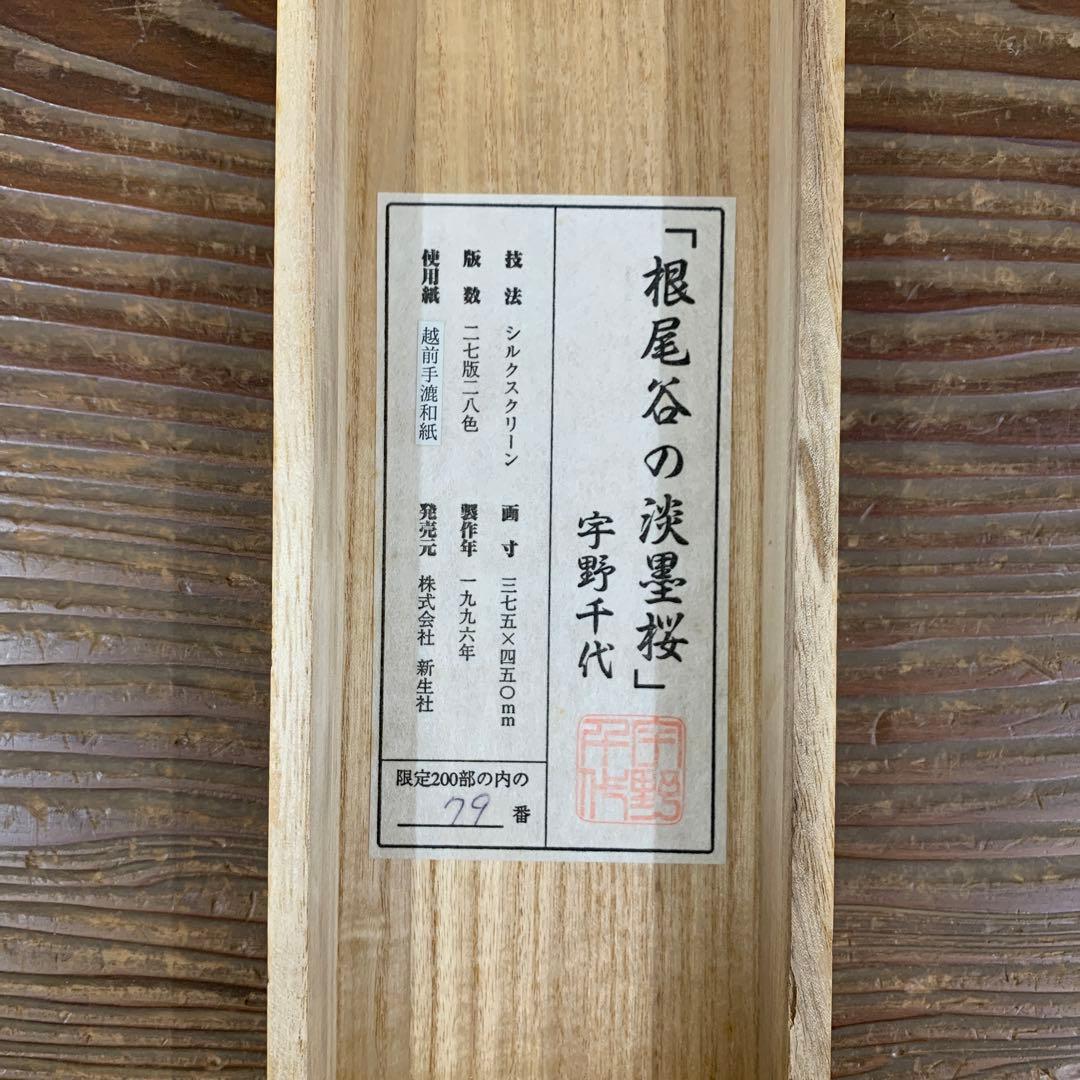 「根尾谷の淡墨桜」
宇野千代
宇野千代
技法 シルクスクリーン
画寸 三七五×四五〇mm
版数 二七版二八色
製作年 一九九六年
使用紙 越前手漉和紙
発売元 株式会社 新生社
限定200部の内の
79 番